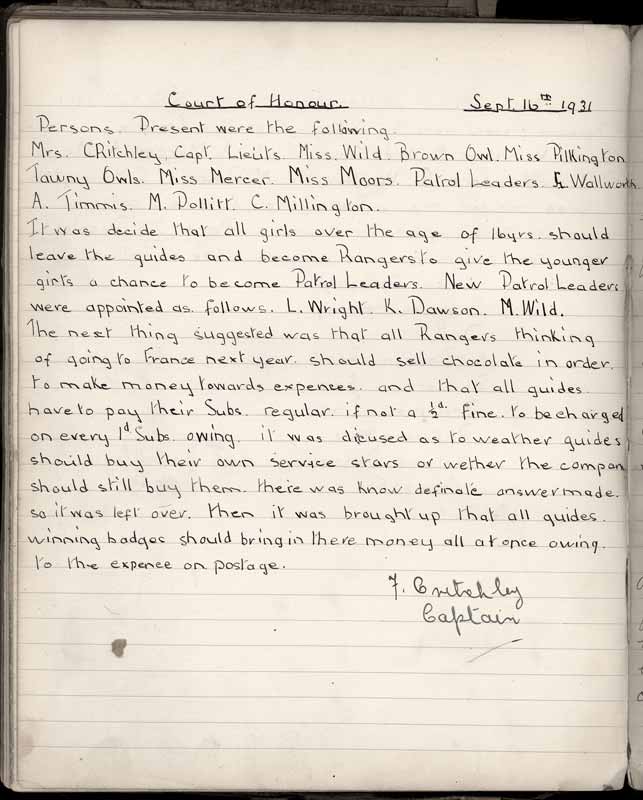 Court of Honour. Sept. 16th 1931
Persons. Present were the following.
Mrs. CRitchley Capt. Lieuts. Miss. Wild. Brown Owl. Miss Pilkington
Tawny Owls. Miss Mercer. Miss Moors. Patrol Leaders. L. Wallworth.
A. Timmis. M. Pollitt. C. Millington.
It was decide that all girls over the age of 16yrs. should
leave the guides and become Rangers to give the younger
girls a chance to become Patrol Leaders. New Patrol Leaders
were appointed as follows. L. Wright. K. Dawson. M. Wild.
The next thing suggested was that all Rangers thinking
of going to France next year. should sell chocolate in order.
to make money towards expences. and that all guides.
have to pay their Subs. regular. if not a ½d. fine. to be charged
on every 1d Subs. owing. it was dicused as to weather guides
should buy their own service stars or wether the compan
should still buy them. there was know definate answer made.
so it was left over. then it was brought up that all guides.
winning badges should bring in there money all at once owing.
to the expence on postage.
F. Critchley
Captain